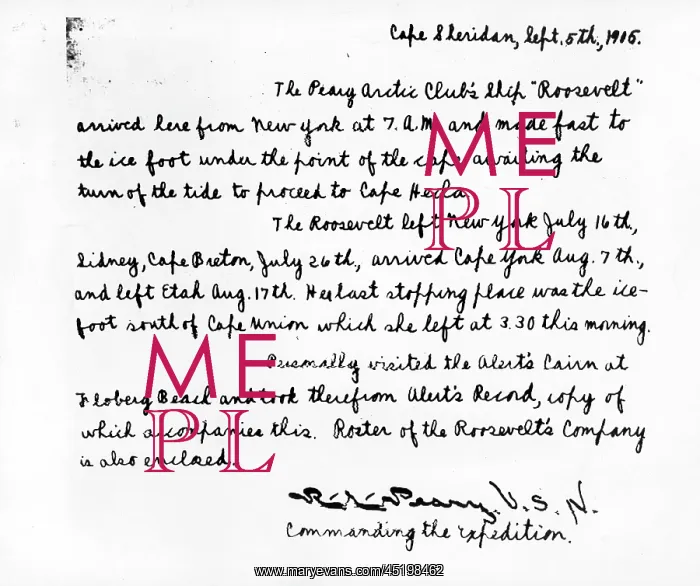 Cape Sheridan, Sept. 5th., 1905.
The Peary Arctic Club's Ship "Roosevelt"
arrived here from New York at 7. A.M. and made fast to
the ice foot under the point of the cape awaiting the
turn of the tide to proceed to Cape Hecla.
The Roosevelt left New York July 16th.,
Sidney, Cape Breton, July 26th., arrived Cape York Aug. 7th.,
and left Etah Aug. 17th. Her last stopping place was the ice-
foot south of Cape Union which she left at 3.30 this morning.
Personally visited the Alert's Cairn at
Floberg Beach and took therefrom Alert's Record, copy of
which accompanies this. Roster of the Roosevelt's Company
is also enclosed.
R. E. Peary, U.S.N.
Commanding the Expedition.
ME
PL
ME
PL
www.maryevans.com/45198462